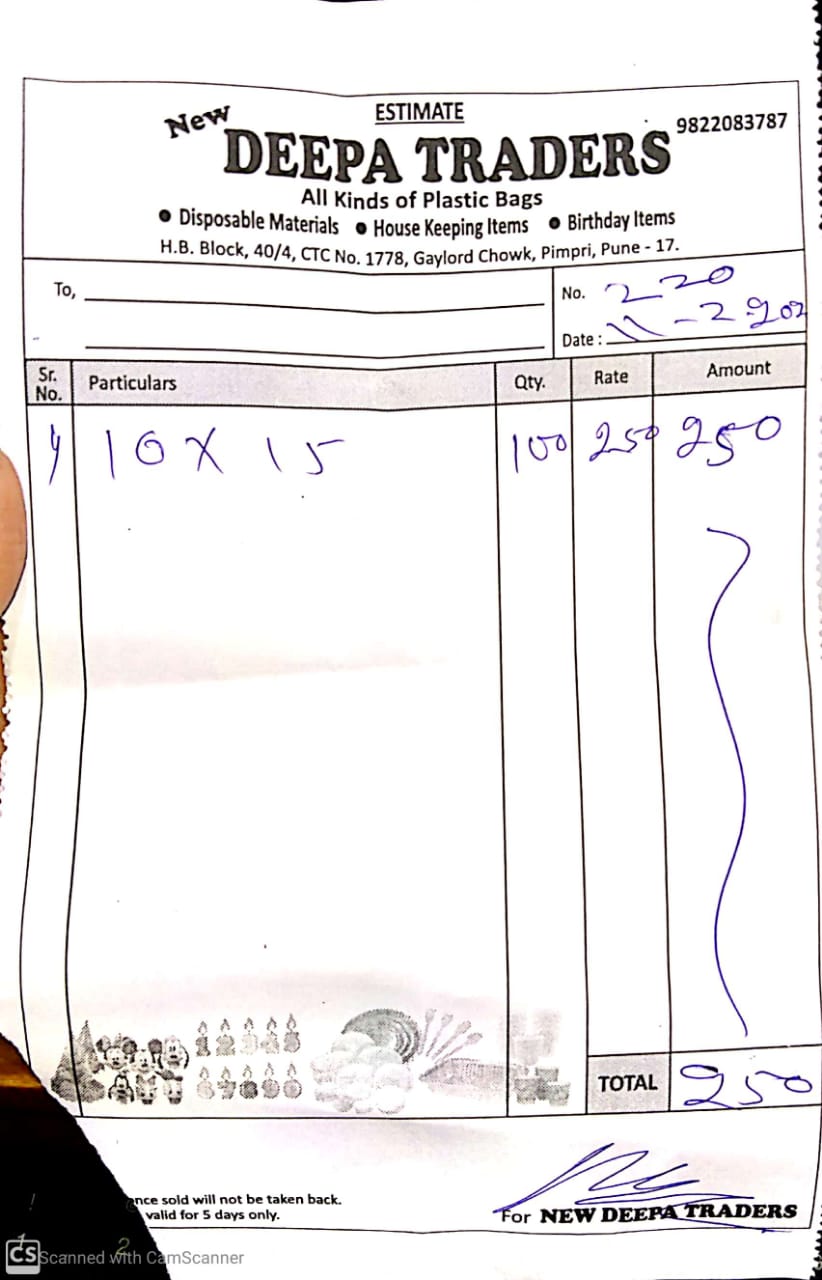 ESTIMATE
9822083787
New
DEEPA TRADERS
All Kinds of Plastic Bags
● Disposable Materials ● House Keeping Items ● Birthday Items
H.B. Block, 40/4, CTC No. 1778, Gaylord Chowk, Pimpri, Pune - 17.
To,
No. 220
Date : 11-2-202
Sr. No. Particulars Qty. Rate Amount
10 X 15 100 250 250
TOTAL 250
nce sold will not be taken back.
valid for 5 days only.
For NEW DEEPA TRADERS
CS Scanned with CamScanner